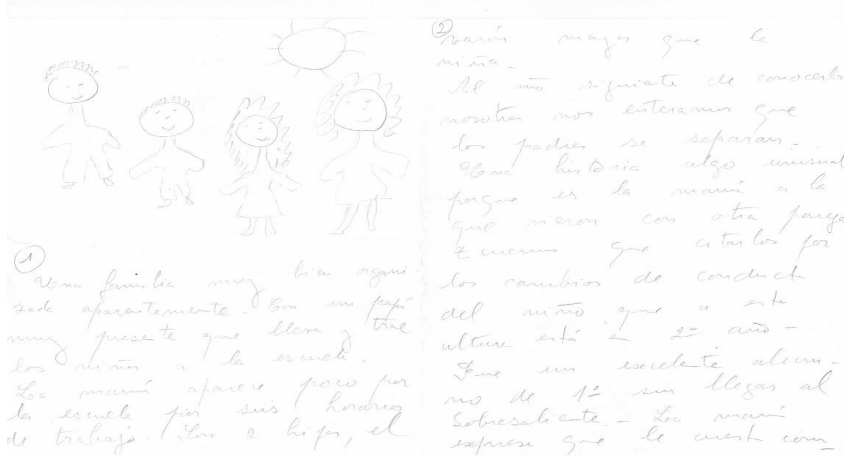 ①
Una familia muy bien organi-
zada aparentemente. Con un papá
muy presente que lleva y trae
los niños a la escuela.
La mamá aparece poco por
la escuela por sus horarios
de trabajo. Los 2 hijos, el
②
varón mayor que la
niña.
Al año siguiente de conocerlos
nosotros nos enteramos que
los padres se separan.
Una historia algo inusual
porque es la mamá a la
que vieron con otra pareja
Tenemos que citarlos por
los cambios de conducta
del niño que a esta
altura está en 2º año -
Fue un excelente alum-
no de 1º sin llegar al
Sobresaliente. - La mamá
expresa que le cuesta com-